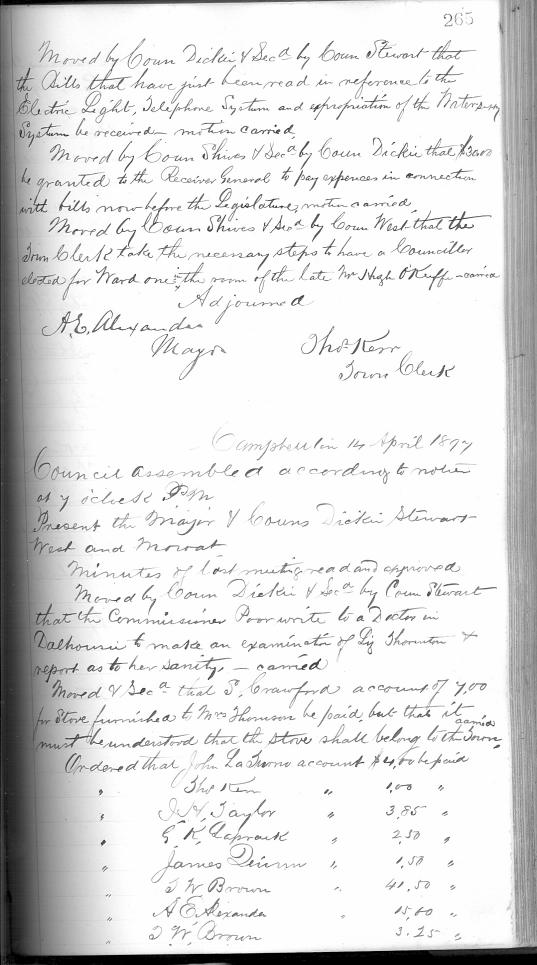 265
Moved by Coun Dickie & Secd by Coun Stewart that
the Bills that have just been read in reference to the
Electric Light, Telephone System and expropriation of the Water
System be received motion carried
Moved by Coun Shives & Secd by Coun Dickie that $300
be granted to the Receiver General to pay expences in connection
with bills now before the Legislature, motion carried
Moved by Coun Shives & Secd by Coun West that the
Town Clerk take the necessary steps to have a Councillor
elected for Ward one in the room of the late Mr Hugh O'Keiffe - carried
Adjourned
A.E. Alexander
Mayor
Thos. Kerr
Town Clerk
Campbellton 14 April 1897
Council assembled according to notice
at 7 o'clock P.M
Present the Mayor & Couns Dickie Stewart
West and Mowat
Minutes of last meeting read and approved
Moved by Coun Dickie & Secd by Coun Stewart
that the Commissioner Poor write to a Doctor in
Dalhousie to make an examination of Liz Thornton &
report as to her sanity, - carried
Moved & Secd that S. Crawford account of 7.00
for Stove furnished to Mrs Thomson be paid, but that it
must be understood that the stove shall belong to the Town, carried
Ordered that John account $4.00 be paid
" Thos Kerr " 1.00 "
" Taylor " 3.85 "
" " 2.50 "
" James " 1.50 "
" T W Brown " 41.50 "
" A E Alexander " 15.00 "
" T. W. Brown 3.25 "